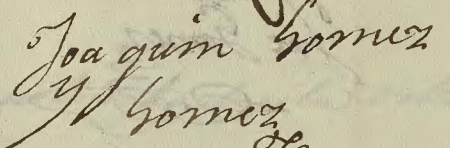 Joaquin Gomez
y Gomez